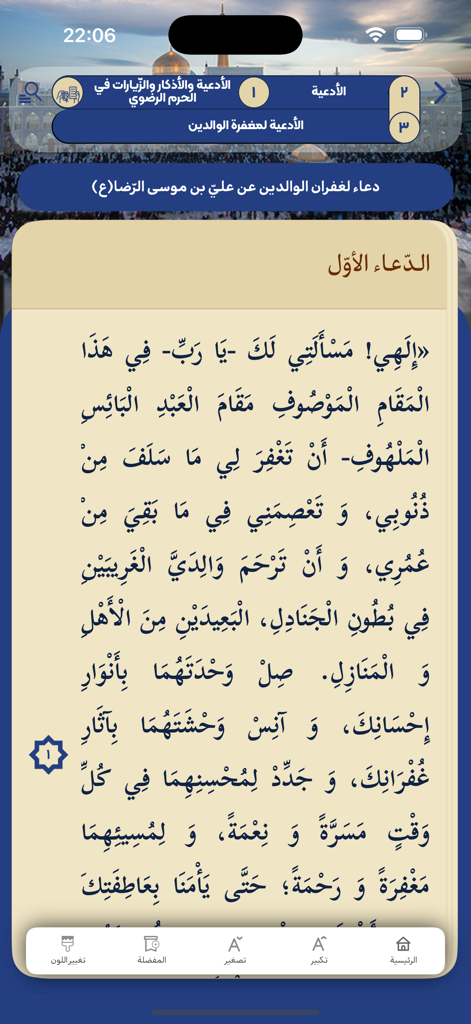 22:06
٢
الأدعية
١
الأدعية والأذكار والزّيارات في
الحرم الرضوي
٣
الأدعية لمغفرة الوالدين
دعاء لغفران الوالدين عن عليّ بن موسى الرّضا(ع)
الدّعاء الأوّل
«إِلَهِي! مَسْأَلَتِي لَكَ -يَا رَبِّ- فِي هَذَا
الْمَقَامِ الْمَوْصُوفِ مَقَامَ الْعَبْدِ الْبَائِسِ
الْمَلْهُوفِ- أَنْ تَغْفِرَ لِي مَا سَلَفَ مِنْ
ذُنُوبِي، وَ تَعْصِمَنِي فِي مَا بَقِيَ مِنْ
عُمُرِي، وَ أَنْ تَرْحَمَ وَالِدَيَّ الْغَرِيبَيْنِ
فِي بُطُونِ الْجَنَادِلِ، الْبَعِيدَيْنِ مِنَ الْأَهْلِ
وَ الْمَنَازِلِ. صِلْ وَحْدَتَهُمَا بِأَنْوَارِ
إِحْسَانِكَ، وَ آنِسْ وَحْشَتَهُمَا بِآثَارِ
١
غُفْرَانِكَ، وَ جَدِّدْ لِمُحْسِنِهِمَا فِي كُلِّ
وَقْتٍ مَسَرَّةً وَ نِعْمَةً، وَ لِمُسِيئِهِمَا
مَغْفِرَةً وَ رَحْمَةً؛ حَتَّى يَأْمَنَا بِعَاطِفَتِكَ
الرئيسية
تكبير
تصغير
المفضلة
تغيير اللون